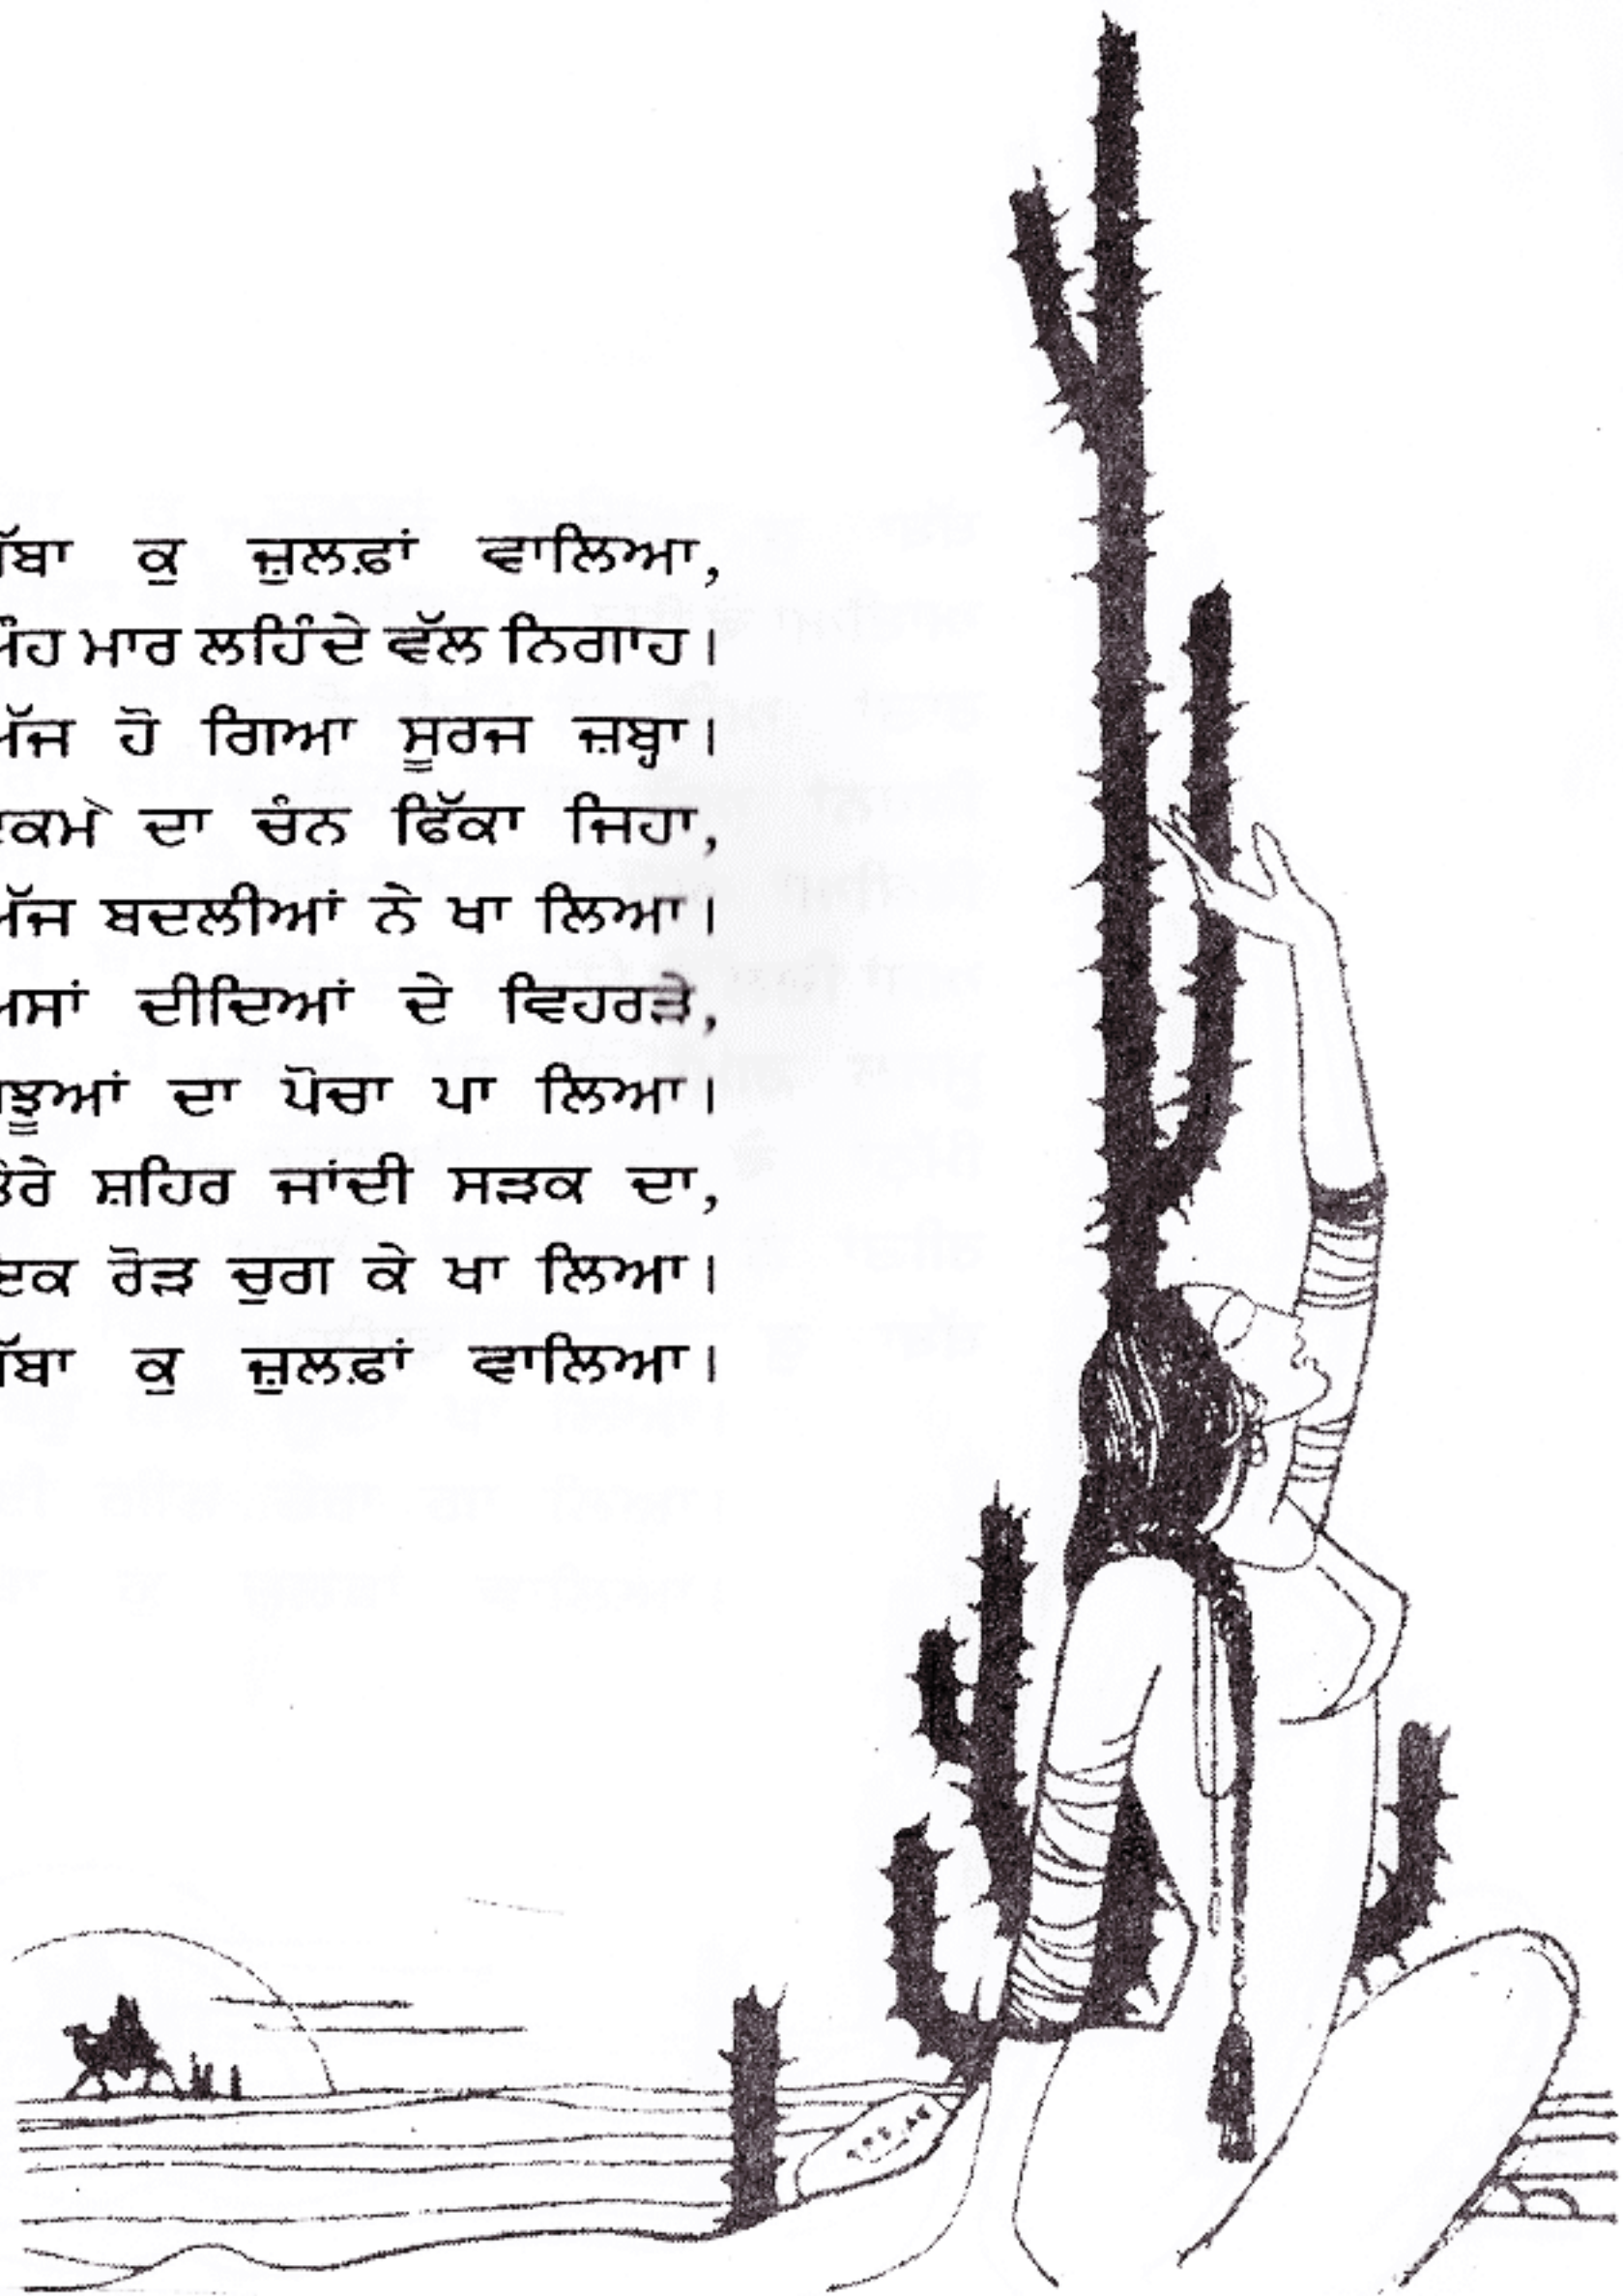 ਕੁ ਜ਼ੁਲਫ਼ਾਂ ਵਾਲਿਆ,
ਮਾਰ ਲਹਿੰਦੇ ਵੱਲ ਨਿਗਾਹ।
ਅੱਜ ਹੋ ਗਿਆ ਸੂਰਜ ਜ਼ਬ੍ਹਾ।
ਦਾ ਚੰਨ ਫਿੱਕਾ ਜਿਹਾ,
ਅੱਜ ਬਦਲੀਆਂ ਨੇ ਖਾ ਲਿਆ।
ਅਸਾਂ ਦੀਦਿਆਂ ਦੇ ਵਿਹਰੜੇ,
ਦਾ ਪੋਚਾ ਪਾ ਲਿਆ।
ਤੇਰੇ ਸ਼ਹਿਰ ਜਾਂਦੀ ਸੜਕ ਦਾ,
ਇਕ ਰੋੜ ਚੁਗ ਕੇ ਖਾ ਲਿਆ।
ਕੁ ਜ਼ੁਲਫ਼ਾਂ ਵਾਲਿਆ।